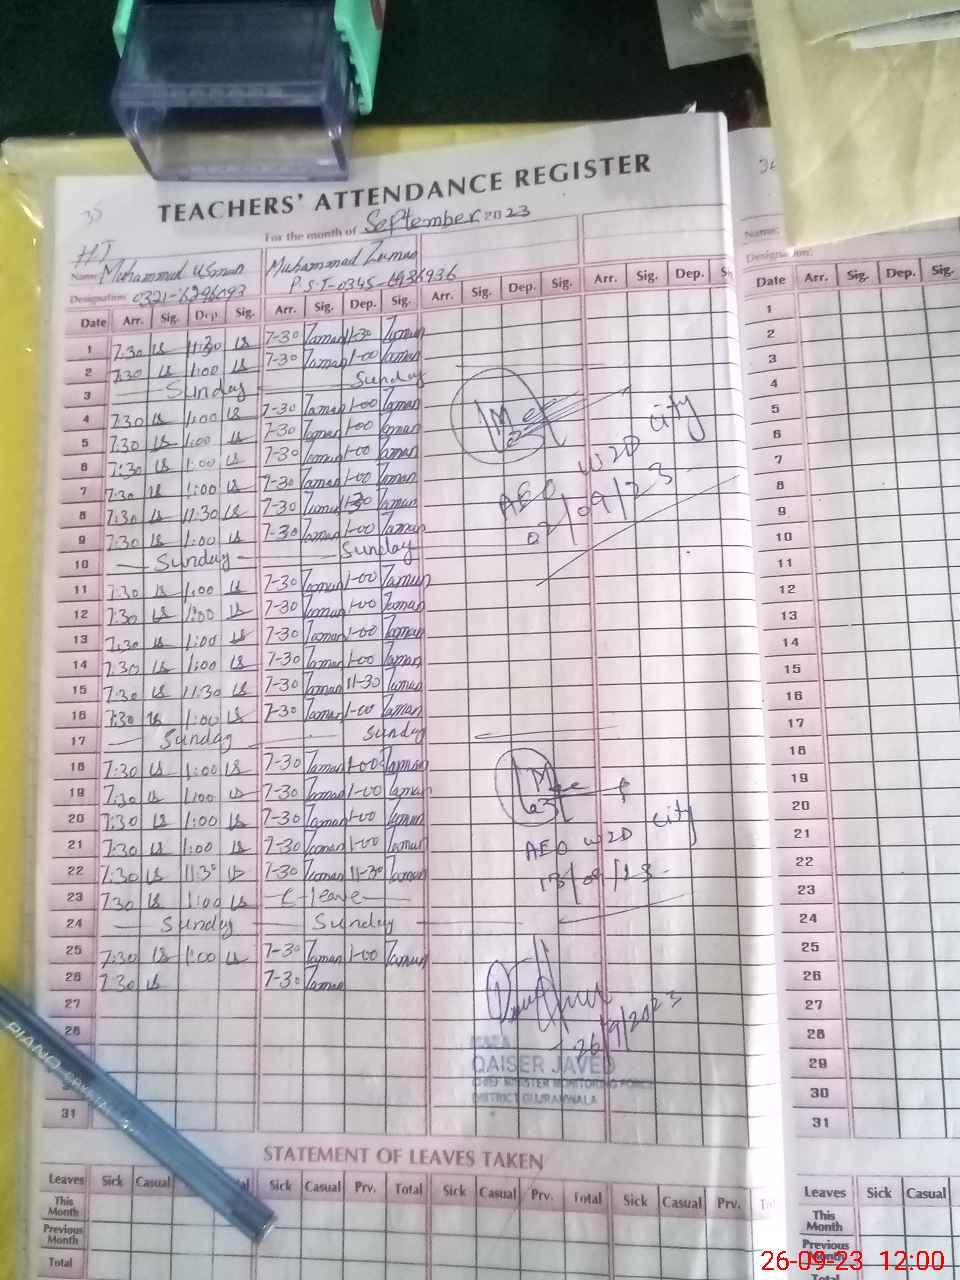 35
TEACHERS' ATTENDANCE REGISTER
For the month of September 2023
HT
Name: Muhammad Usman Muhammad Zaman
Designation: 0321-6296093 P.S.T-0345-6936936
Date Arr. Sig. Dep. Sig. Arr. Sig. Dep. Sig. Arr. Sig. Dep. Sig. Arr. Sig. Dep.
1 7:30 us 11:30 us 7-30 Zaman 11-30 Zaman
2 7:30 us 1:00 us 7-30 Zaman 1-00 Zaman
3 Sunday Sunday
4 7:30 us 1:00 us 7-30 Zaman 1-00 Zaman
5 7:30 us 1:00 us 7-30 Zaman 1-00 Zaman
6 7:30 us 1:00 us 7-30 Zaman 1-00 Zaman
7 7:30 us 1:00 us 7-30 Zaman 1-00 Zaman
8 7:30 us 11:30 us 7-30 Zaman 11-30 Zaman
9 7:30 us 1:00 us 7-30 Zaman 1-00 Zaman
10 Sunday Sunday
11 7:30 us 1:00 us 7-30 Zaman 1-00 Zaman
12 7:30 us 1:00 us 7-30 Zaman 1-00 Zaman
13 7:30 us 1:00 us 7-30 Zaman 1-00 Zaman
14 7:30 us 1:00 us 7-30 Zaman 1-00 Zaman
15 7:30 us 11:30 us 7-30 Zaman 11-30 Zaman
16 7:30 us 1:00 us 7-30 Zaman 1-00 Zaman
17 Sunday Sunday
18 7:30 us 1:00 us 7-30 Zaman 1-00 Zaman
19 7:30 us 1:00 us 7-30 Zaman 1-00 Zaman
20 7:30 us 1:00 us 7-30 Zaman 1-00 Zaman
21 7:30 us 1:00 us 7-30 Zaman 1-00 Zaman
22 7:30 us 11:30 us 7-30 Zaman 11-30 Zaman
23 7:30 us 1:00 us C-leave
24 Sunday Sunday
25 7:30 us 1:00 us 7-30 Zaman 1-00 Zaman
26 7:30 us 7-30 Zaman
27
28
31
AEO WZD city
02/09/23
AEO WZD city
18/09/23
26/9/2023
QAISER JAVED
CHIEF MINISTER MONITORING FORCE
DISTRICT GUJRANWALA
STATEMENT OF LEAVES TAKEN
Leaves Sick Casual Total Sick Casual Prv. Total Sick Casual Prv. Total Sick Casual Prv.
This Month
Previous Month
Total
Name:
Designation:
Date Arr. Sig. Dep. Sig.
1
2
3
4
5
6
7
8
9
10
11
12
13
14
15
16
17
18
19
20
21
22
23
24
25
26
27
28
29
30
31
Leaves Sick Casual
This Month
Previous Month
Total
PIANO
26-09-23 12:00